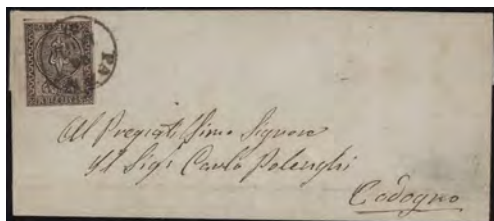 PA
Al Pregiatissimo Signore
Il Sigr Carlo Polenghi
Codogno